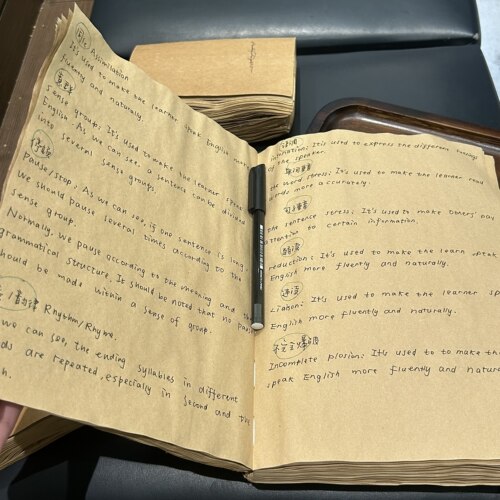 同化 Assimilation
It's used to make the learner speak English more
fluently and naturally.
意群
sense group: It's used to make the learner speak
English. As we can see, a sentence can be divided
into several sense groups.
停顿
Pause/stop: As we can see, is one sentence is long,
we should pause several times according to the
sense group.
Normally, we pause according to the meaning and the
grammatical structure. It should be noted that no pause
should be made within a sense of group.
/韵律 Rhythm/Rhyme.
we can see, the ending syllables in different
are repeated, especially in second and the
语调
It's used to express the different
of the speaker.
单词重音
the word stress: It's used to make the learner read
words more accurately.
句子重音
the sentence stress: It's used to make others pay
attention to certain information.
reduction: It's used to make the learn speak
English more fluently and naturally.
连读
Liaison: It's used to make the learner
English more fluently and naturally.
不完全爆破
Incomplete plosion: It's used to to make the
speak English more fluently and